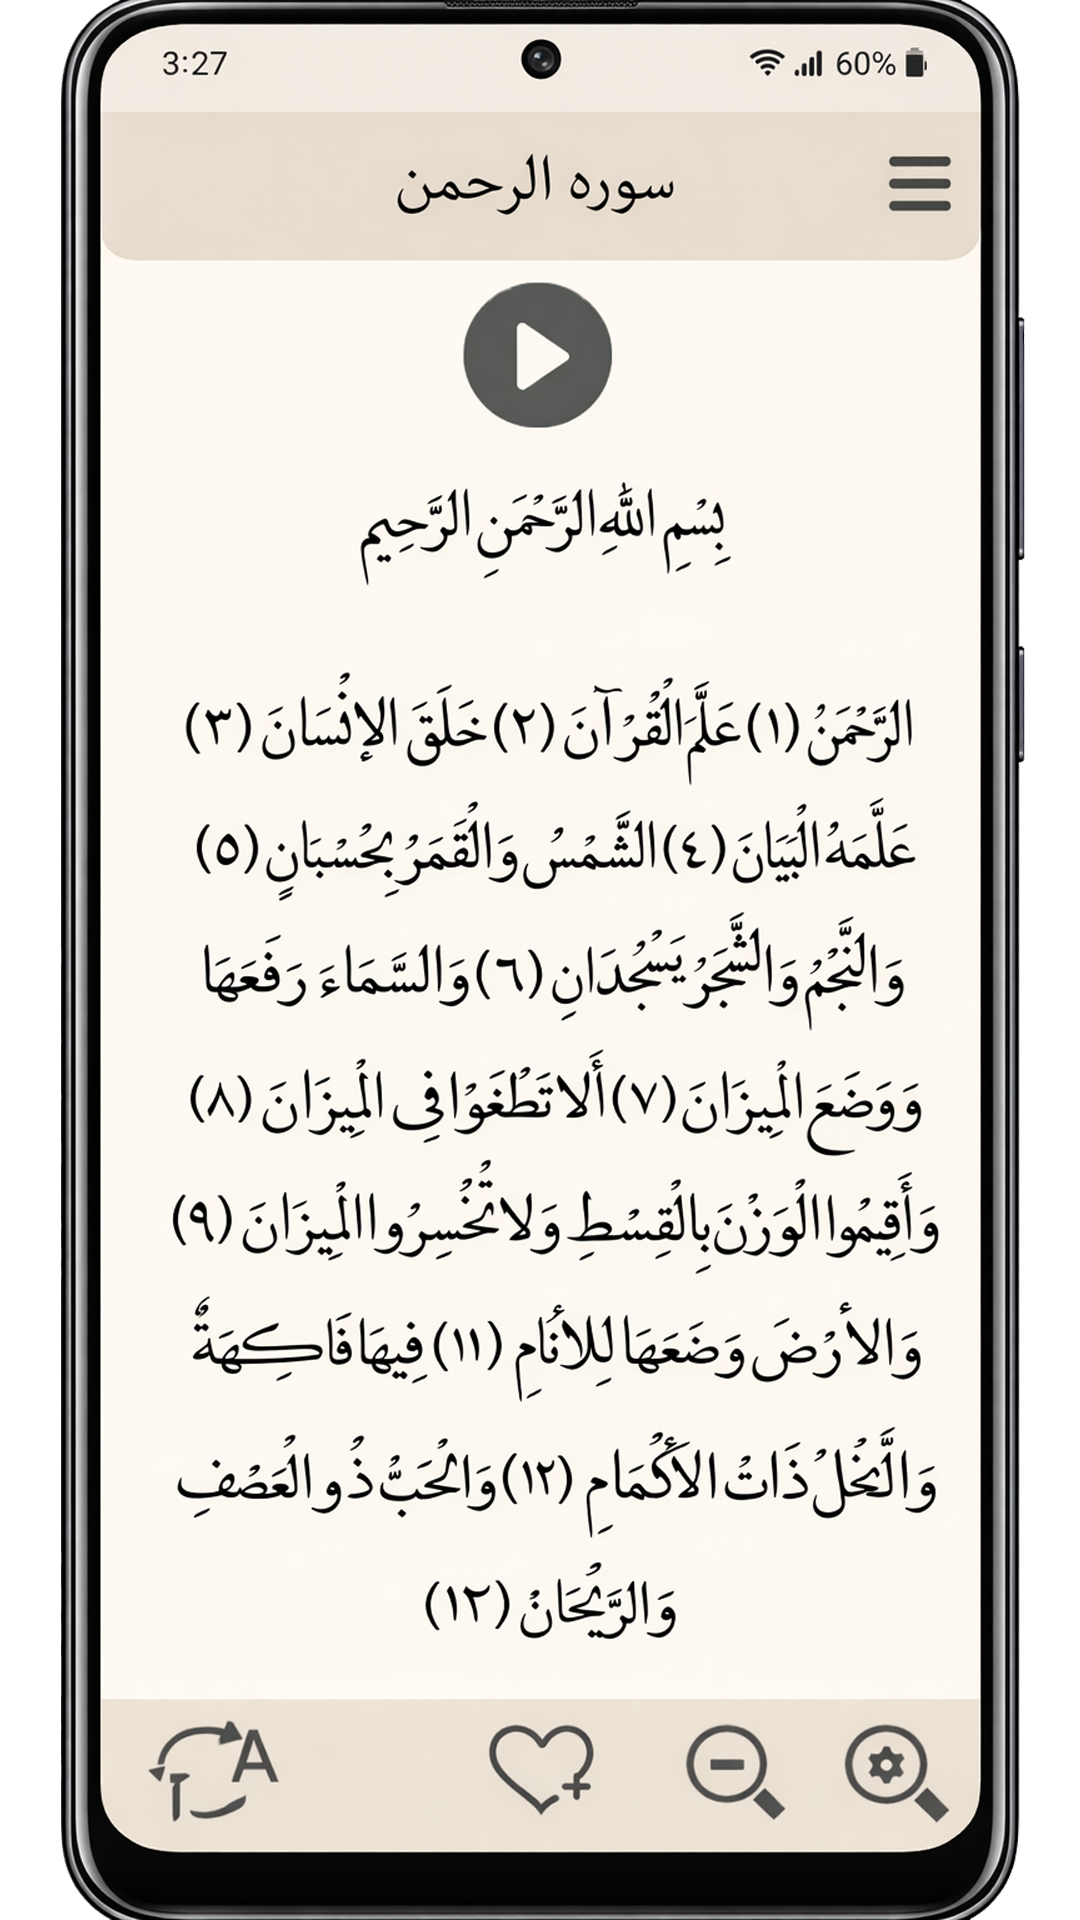 3:27 60%
سوره الرحمن
بِسْمِ اللَّهِ الرَّحْمَنِ الرَّحِيم
الرَّحْمَنُ (١) عَلَّمَ الْقُرْآنَ (٢) خَلَقَ الإنْسَانَ (٣)
عَلَّمَهُ الْبَيَانَ (٤) الشَّمْسُ وَالْقَمَرُ بِحُسْبَانٍ (٥)
وَالنَّجْمُ وَالشَّجَرُ يَسْجُدَانِ (٦) وَالسَّمَاءَ رَفَعَهَا
وَوَضَعَ الْمِيزَانَ (٧) أَلا تَطْغَوْا فِي الْمِيزَانَ (٨)
وَأَقِيمُوا الْوَزْنَ بِالْقِسْطِ وَلا تُخْسِرُوا الْمِيزَانَ (٩)
وَالأرْضَ وَضَعَهَا لِلأنَامِ (١١) فِيهَا فَاكِهَةٌ
وَالنَّخْلُ ذَاتُ الأكْمَامِ (١٢) وَالْحَبُّ ذُو الْعَصْفِ
وَالرَّيْحَانُ (١٢)
A